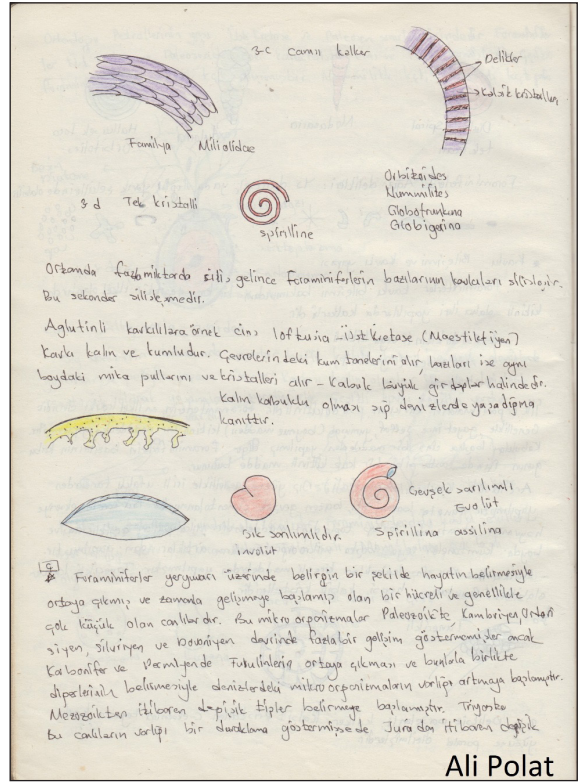 3-c Camsı kalker
Delikler
Kalsit kristalleri
Familya Miliolidae
Orbitoides
Nummulites
Globotruncana
Globigerina
3 d Tek kristalli
spirilline
Ortamda fazla miktarda silis gelince Foraminiferlerin bazılarının kavkıları silisleşir.
Bu sekonder silisleşmedir.
Aglutinli kavkılılara örnek cins loftusia - Üst Kretase (Maestihtiyen)
Kavkı kalın ve kumludur. Çevrelerindeki kum tanelerini alır, bazıları ise aynı
boydaki mika pullarını ve kristalleri alır - Kabuk büyük girdaplar halindedir.
kalın kabuklu olması sığ denizlerde yaşadığına
kanıttır.
Sık sarılımlıdır.
involüt
Gevşek sarılımlı
Evolüt
Spirillina assilina
Ç
Foraminiferler yeryuvarı üzerinde belirgin bir şekilde hayatın belirmesiyle
ortaya çıkmış ve zamanla gelişmeye başlamış olan bir hücreli ve genellikle
çok küçük olan canlılardır. Bu mikro organizmalar Paleozoikte, Kambriyen, Ordovi
siyen, Siluriyen ve Devoniyen devrinde fazla bir gelişim göstermemişler ancak
Karbonifer ve Permiyende Fusulinlerin ortaya çıkması ve bunlarla birlikte
diğerlerinin belirmesiyle denizlerdeki mikroorganizmaların varlığı artmaya başlamıştır.
Mezozoikten itibaren değişik tipler belirmeye başlamıştır. Triyasta
bu canlıların varlığı bir duraklama göstermişse de Jura dan itibaren değişik
Ali Polat